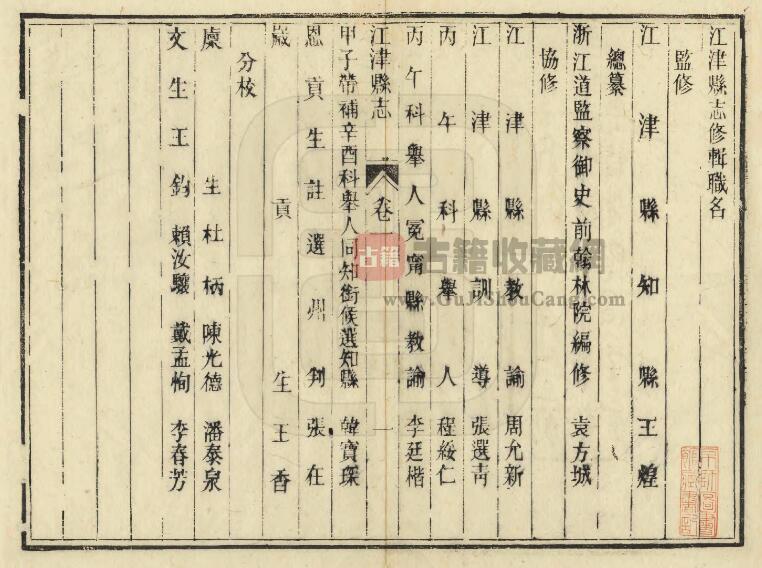 江津縣志修輯職名
監修
江津縣知縣王煌
總纂
浙江道監察御史前翰林院編修 袁方城
協修
江津縣教諭 周允新
江津縣訓導 張選青
丙午科舉人 程綏仁
丙午科舉人冕甯縣教諭 李廷楷
江津縣志 卷一 一
甲子帶補辛酉科舉人同知銜候選知縣 韓寶琛
恩貢生註選州判張在
歲貢生王香
分校
廩生杜柄 陳光德 潘泰泉
文生王鈞 賴汝驤 戴孟恂 李春芳
古籍 古籍收藏網
www.GuJiShouCang.com